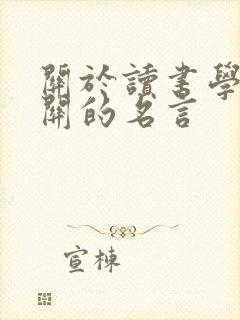 關於讀書學
關的名言
宣棟